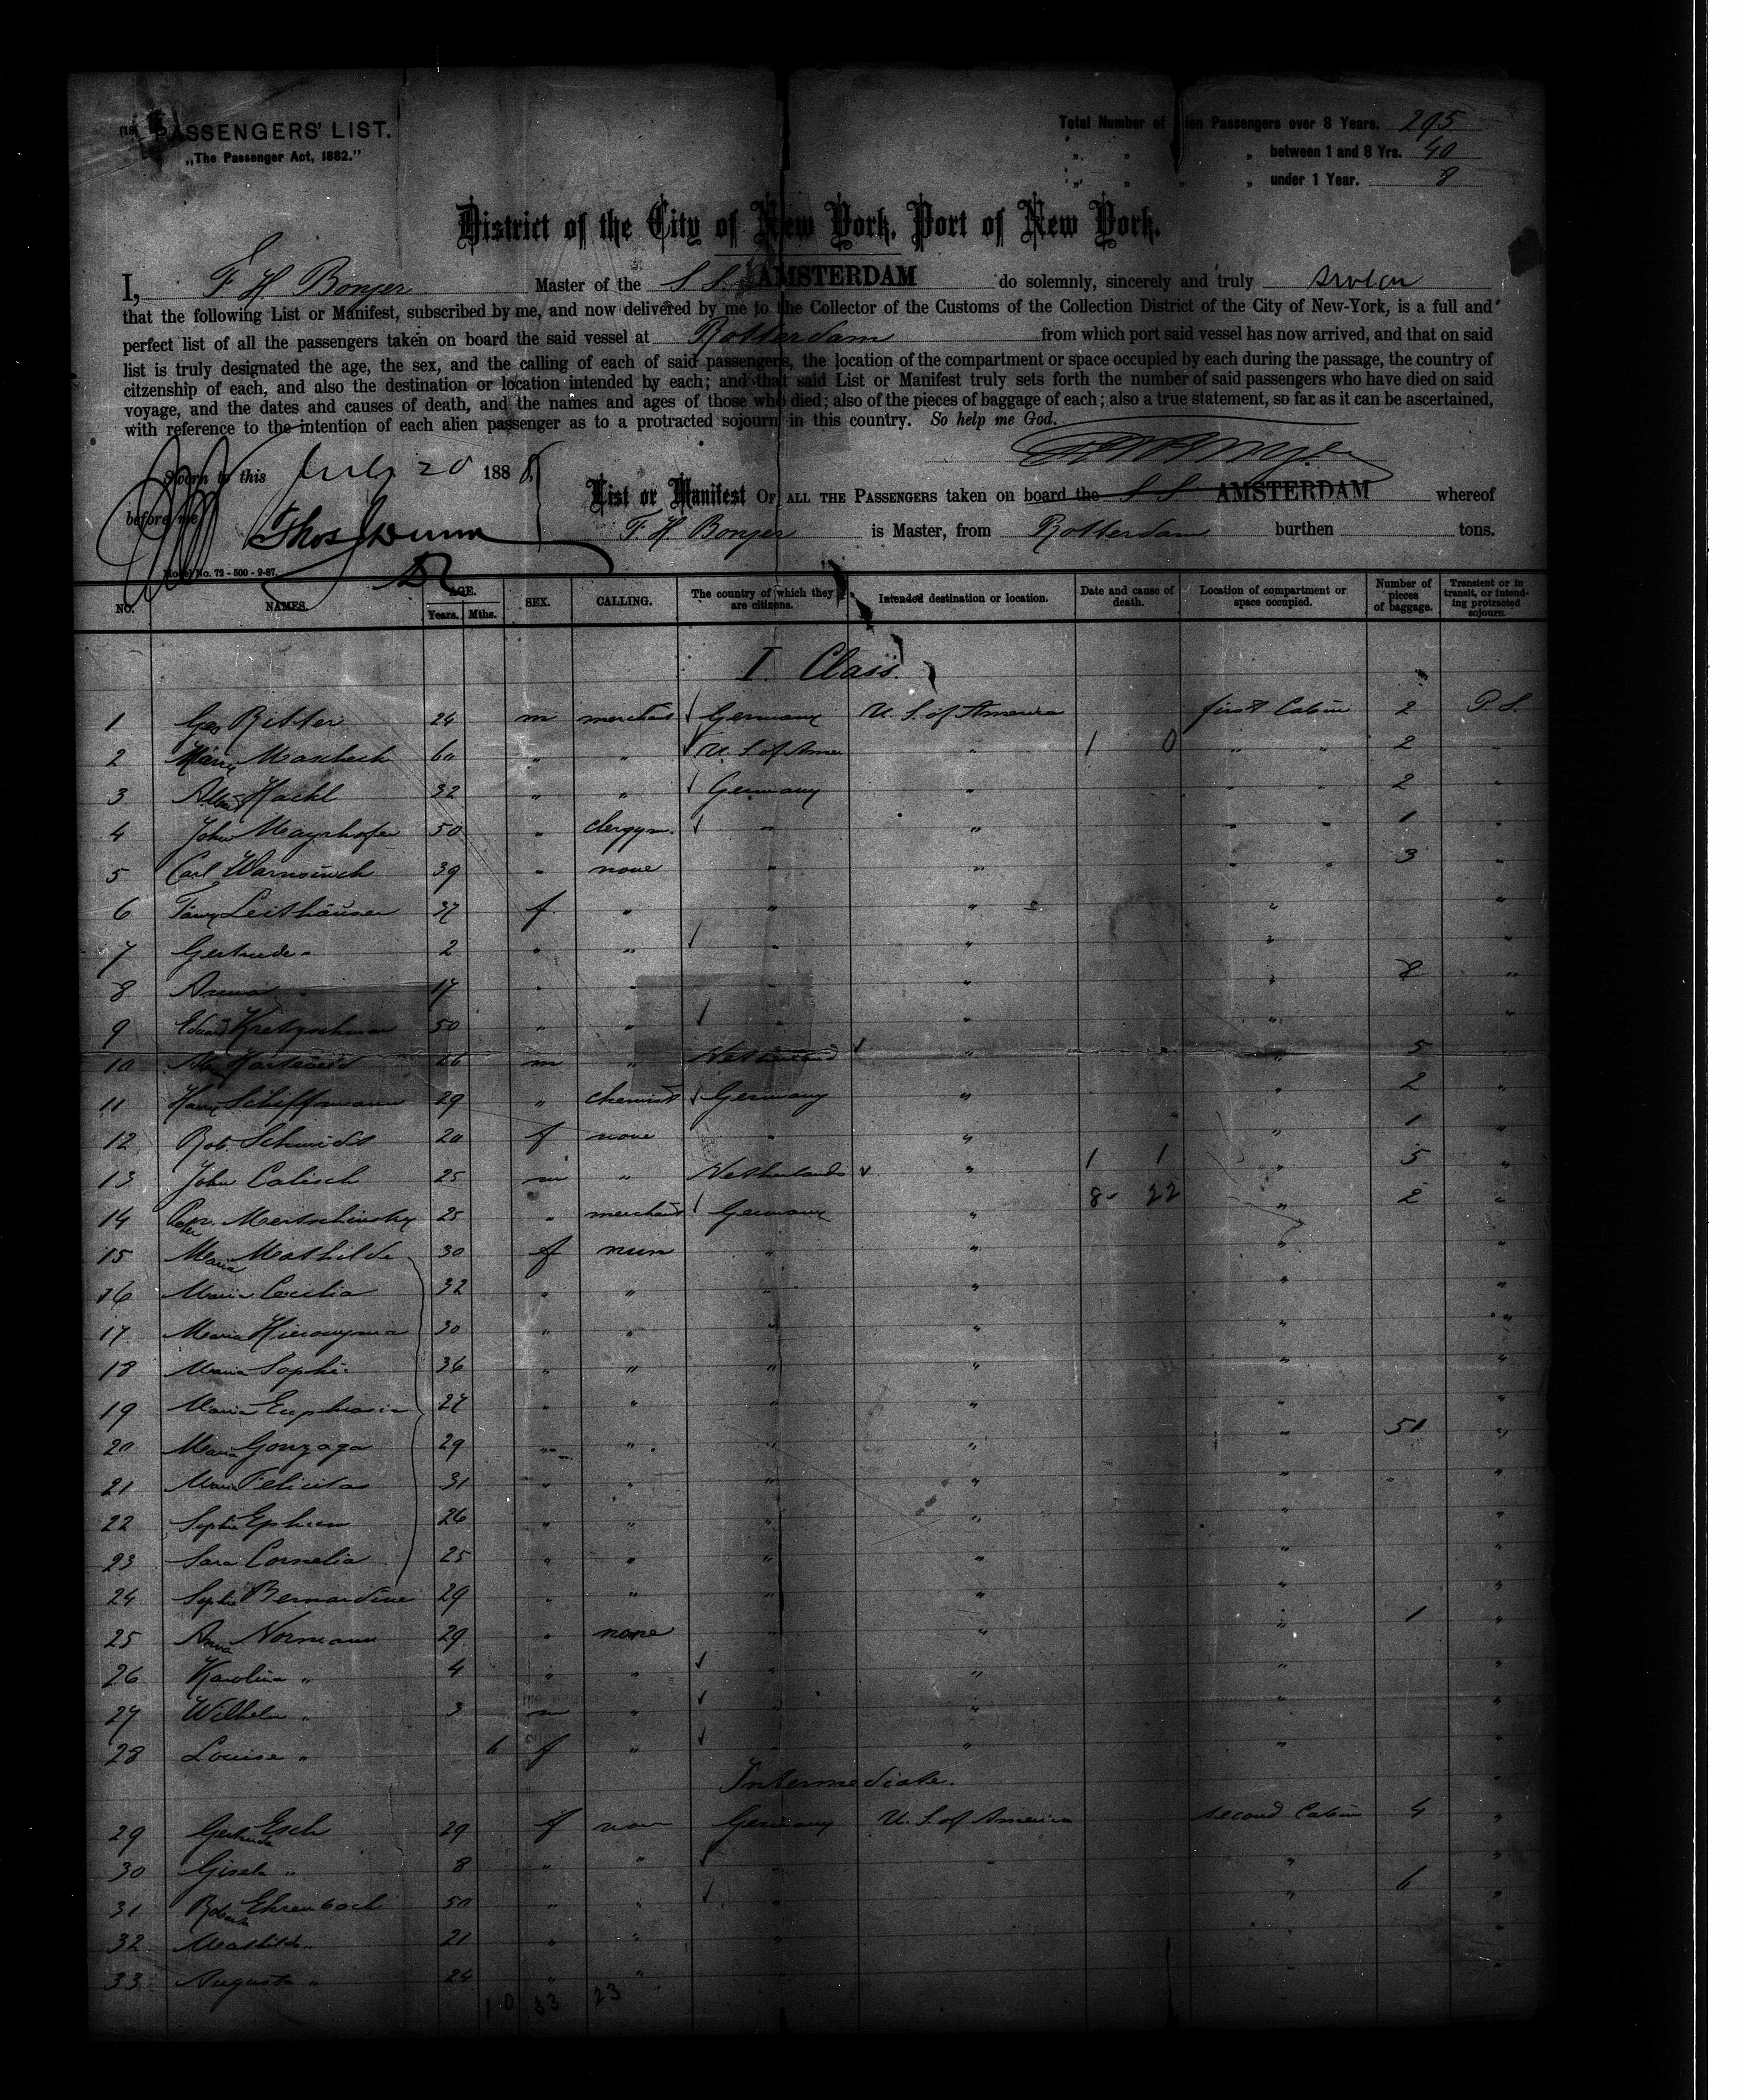 PASSENGERS' LIST.
„The Passenger Act, 1882."
Total Number of Passengers over 8 Years. 295
„ „ „ between 1 and 8 Yrs. 40
„ „ „ „ under 1 Year. 8
District of the City of New York, Port of New York.
I, F H Bonjer Master of the S S. AMSTERDAM do solemnly, sincerely and truly
that the following List or Manifest, subscribed by me, and now delivered by me to the Collector of the Customs of the Collection District of the City of New-York, is a full and
perfect list of all the passengers taken on board the said vessel at Rotterdam from which port said vessel has now arrived, and that on said
list is truly designated the age, the sex, and the calling of each of said passengers, the location of the compartment or space occupied by each during the passage, the country of
citzenship of each, and also the destination or location intended by each; and that said List or Manifest truly sets forth the number of said passengers who have died on said
voyage, and the dates and causes of death, and the names and ages of those who died; also of the pieces of baggage of each; also a true statement, so far as it can be ascertained,
with reference to the intention of each alien passenger as to a protracted sojourn in this country. So help me God.
Sworn to this July 20 1888
before me
List or Manifest OF ALL THE PASSENGERS taken on board the S S AMSTERDAM whereof
F H Bonjer is Master, from Rotterdam burthen tons.
Model No. 72 - 500 - 9-87.
NO. NAMES. AGE. Years. Mths. SEX. CALLING. The country of which they are citizens. Intended destination or location. Date and cause of death. Location of compartment or space occupied. Number of pieces of baggage. Transient or in transit, or intending protracted sojourn.
I. Class.
1 Geo Ritter 24 m merchant Germany U. S. of America first Cabin 2 P. S.
2 Maschech 60 „ „ U. S. of Amer „ 1 0 „ „ 2 „
3 Albert Hachl 32 „ „ Germany „ „ „ 2 „
4 John Mayrhofer 50 „ clergym. „ „ „ „ 1 „
5 Carl 39 „ none „ „ „ „ 3 „
6 Leithäuser 37 f „ „ „ „ „
7 Gertrude „ 2 „ „ „ „ „ „
8 Anna „ 17 „ „ „ „ „ 8 „
9 Eduard Kretzschmar 50 „ „ „ „ „ „
10 26 m „ Netherland „ „ 5 „
11 Schiffmann 29 „ chemist Germany „ „ 2 „
12 Rob. Schmidt 20 f none „ „ „ 1 „
13 John Calisch 25 m „ Netherlands „ 1 1 „ 5 „
14 Mertschinsky 25 „ merchant Germany „ 8- 22 „ 2 „
15 Maria Mathilde 30 f nun „ „ „ „
16 Maria Cecilia 32 „ „ „ „ „ „
17 Maria Hieronyma 30 „ „ „ „ „ „
18 Maria Sophie 36 „ „ „ „ „ „
19 Maria Euphrasia 27 „ „ „ „ „ „
20 Maria Gonzaga 29 „ „ „ „ „ 51 „
21 Maria Felicitas 31 „ „ „ „ „ „
22 Sophie Ephrem 26 „ „ „ „ „ „
23 Sara Cornelia 25 „ „ „ „ „ „
24 Sophie Bernardine 29 „ „ „ „ „ „
25 Anna Normann 29 „ none „ „ „ 1 „
26 Karolina „ 4 „ „ „ „ „ „
27 Wilhelm „ 3 m „ „ „ „ „
28 Louise „ 6 f „ „ „ „ „
Intermediate.
29 Gertruda Esch 29 f non Germany U. S. of America second Cabin 4 „
30 Gisela „ 8 „ „ „ „ „ „
31 Ehrenbach 50 „ „ „ „ 6 „
32 Mathilde „ 21 „ „ „ „ „
33 Augusta „ 24 „ „ „ „ „
10 33 23